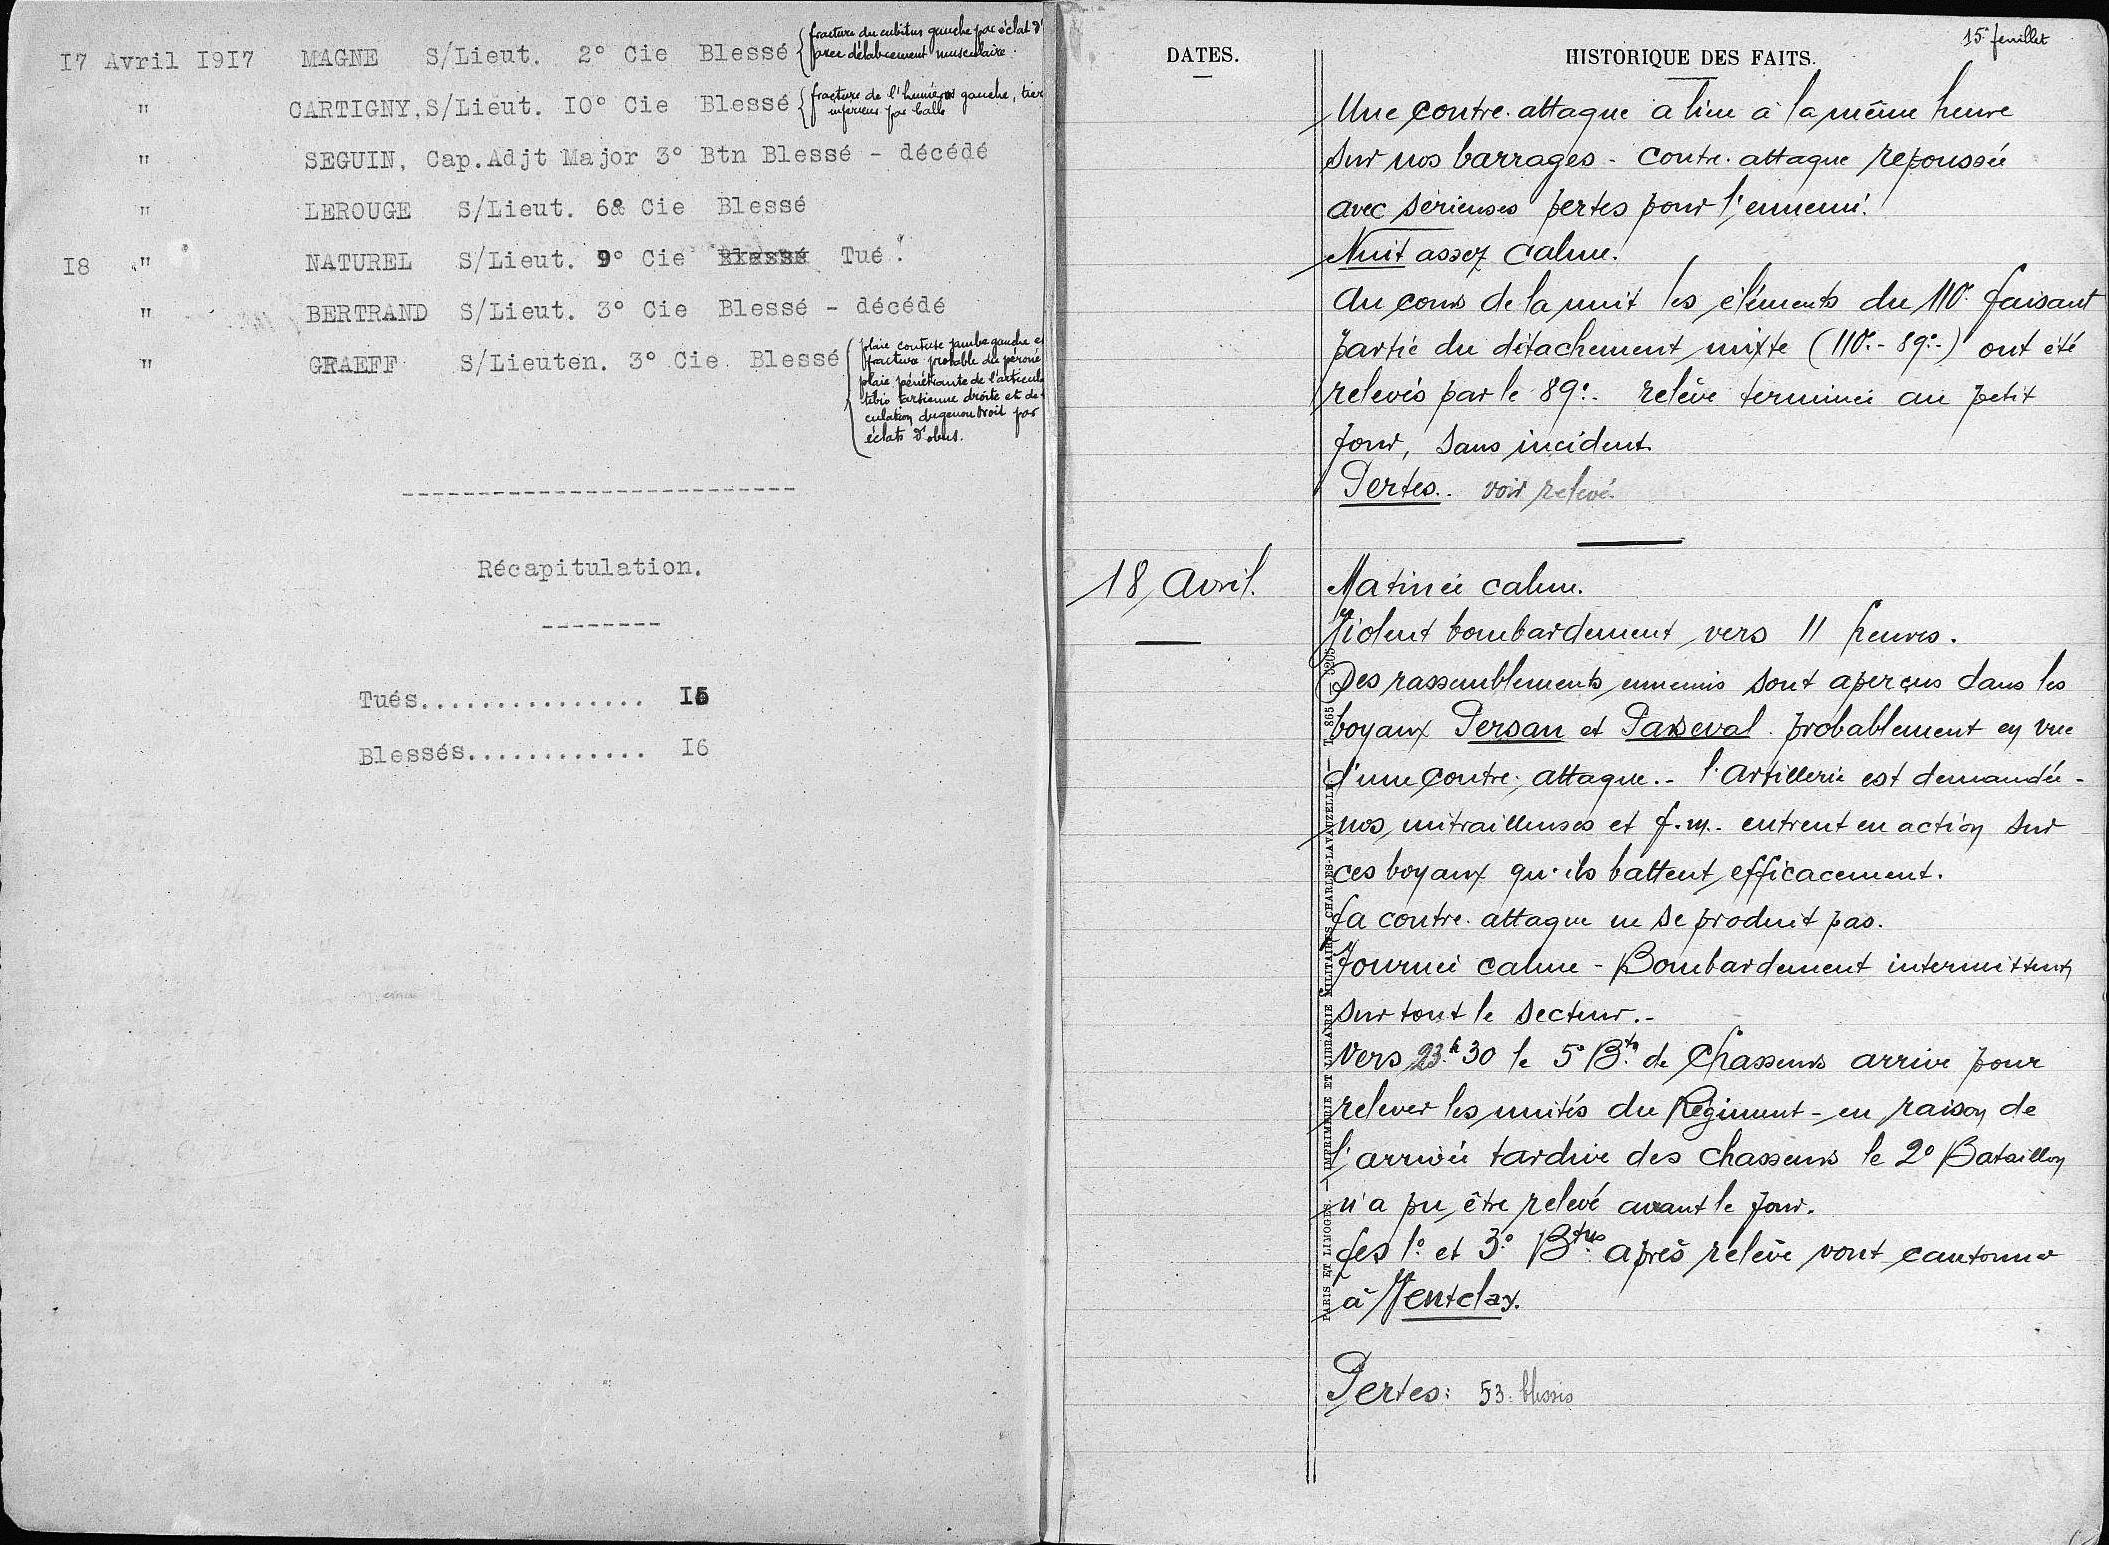 17 Avril 1917 MAGNE S/Lieut. 2° Cie Blessé
fracture du cubitus gauche par éclat d'
avec délabrement musculaire.
" CARTIGNY, S/Lieut. 10° Cie Blessé
fracture de l'humérus gauche, tier
inférieur par balle
" SEGUIN, Cap.Adjt Major 3° Btn Blessé - décédé
" LEROUGE S/Lieut. 6è Cie Blessé
18 " NATUREL S/Lieut. 9° Cie Blessé Tué.
" BERTRAND S/Lieut. 3° Cie Blessé - décédé
" GRAEFF S/Lieuten. 3° Cie Blessé
plaie contuse jambe gauche e
fracture probable du péroné
plaie pénétrante de l'articul
tibio tarsienne droite et de
culation du genou droit par
éclats d'obus.
Récapitulation.
Tués............... 15
Blessés............ 16
15e feuillet
DATES.
HISTORIQUE DES FAITS.
Une contre-attaque a lieu à la même heure
sur nos barrages - contre-attaque repoussée
avec sérieuses pertes pour l'ennemi.
Nuit assez calme.
Au cours de la nuit les éléments du 110e faisant
partie du détachement mixte (110e - 89e -) ont été
relevés par le 89e - relève terminée au petit
jour, sans incident.
Pertes. voir relevé.
18 Avril.
Matinée calme.
Violent bombardement vers 11 heures.
Des rassemblements ennemis sont aperçus dans les
boyaux Persan et Parseval. probablement en vue
d'une contre-attaque. - l'artillerie est demandée -
nos mitrailleuses et f.m. entrent en action sur
ces boyaux qu'ils battent efficacement.
La contre-attaque ne se produit pas.
Journée calme - Bombardement intermittent
sur tout le secteur. -
Vers 23h30 le 5° Btn de Chasseurs arrive pour
relever les unités du Régiment - en raison de
l'arrivée tardive des chasseurs le 2° Bataillon
n'a pu être relevé avant le jour.
Les 1° et 3° Btns après relève vont cantonner
à Ventelay.
Pertes: 53 blessés
PARIS ET LIMOGES. — IMPRIMERIE ET LIBRAIRIE MILITAIRES CHARLES-LAVAUZELLE. —